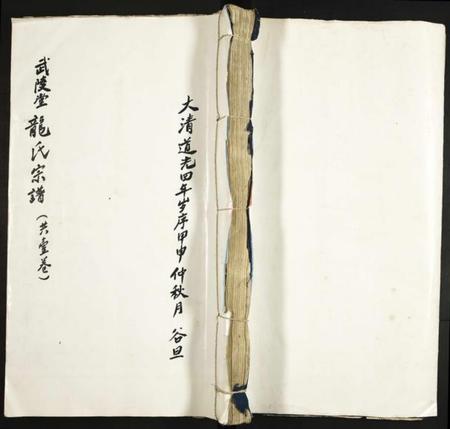 大清道光四年岁序甲申仲秋月 谷旦
武陵堂 龍氏宗譜(共壹卷)